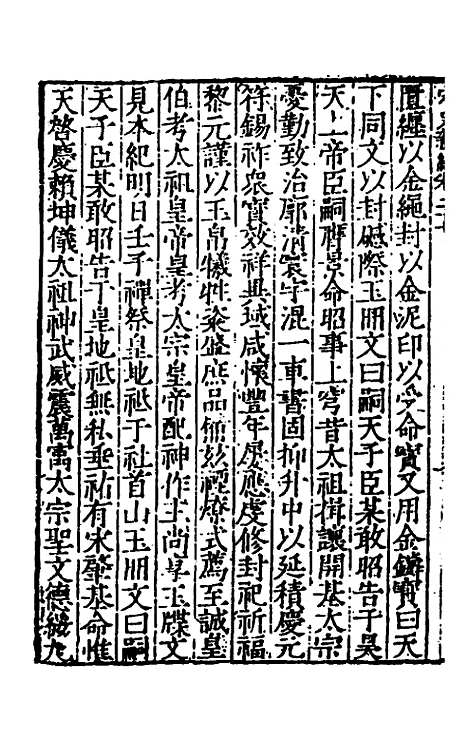 匱纏以金繩封以金泥印以受命寶又用金鑄寶曰天
下同文以封礈際玉冊文曰嗣天子臣某敢昭告于昊
天上帝臣嗣膺景命昭事上穹昔太祖揖讓開基太宗
憂勤致治廓清寰宇混一車書固抑升中以延積慶元
符錫祚衆寶效祥異域咸懷豐年屢應虔修封祀祈福
黎元謹以玉帛犧牲粢盛庶品備玆禋燎式薦至誠皇
伯考太祖皇帝皇考太宗皇帝配神作主尚享玉牒文
見本紀明日壬子禪祭皇地祗于社首山玉冊文曰嗣
天子臣某敢昭告于皇地祗無私垂祐有宋肇基命惟
天啓慶賴坤儀太祖神武威震萬寓太宗聖文德綏九